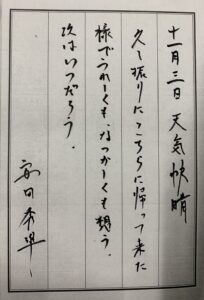 十一月三日 天気快晴
久し振りにこちらに帰って来た
様でうれしくも、なつかしくも想う。
次はいつだろう。